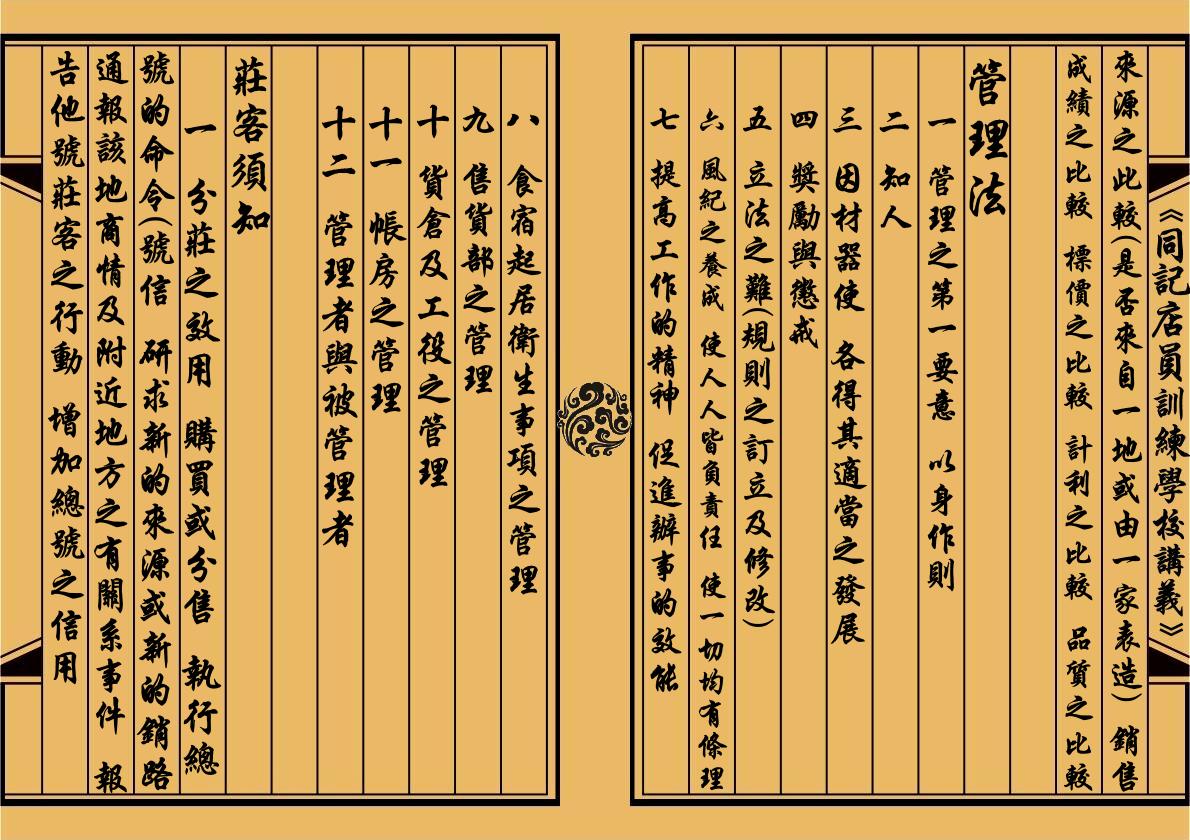 《同記店員訓練學校講義》
來源之此較(是否來自一地或由一家表造) 銷售
成績之比較 標價之比較 計利之比較 品質之比較
管理法
一 管理之第一要意 以身作則
二 知人
三 因材器使 各得其適當之發展
四 獎勵與懲戒
五 立法之難(規則之訂立及修改)
六 風紀之養成 使人人皆負責任 使一切均有條理
七 提高工作的精神 促進辦事的效能
八 食宿起居衛生事項之管理
九 售貨部之管理
十 貨倉及工役之管理
十一 帳房之管理
十二 管理者與被管理者
莊客須知
一 分莊之效用 購買或分售 執行總
號的命令(號信 研求新的來源或新的銷路
通報該地商情及附近地方之有關系事件 報
告他號莊客之行動 增加總號之信用